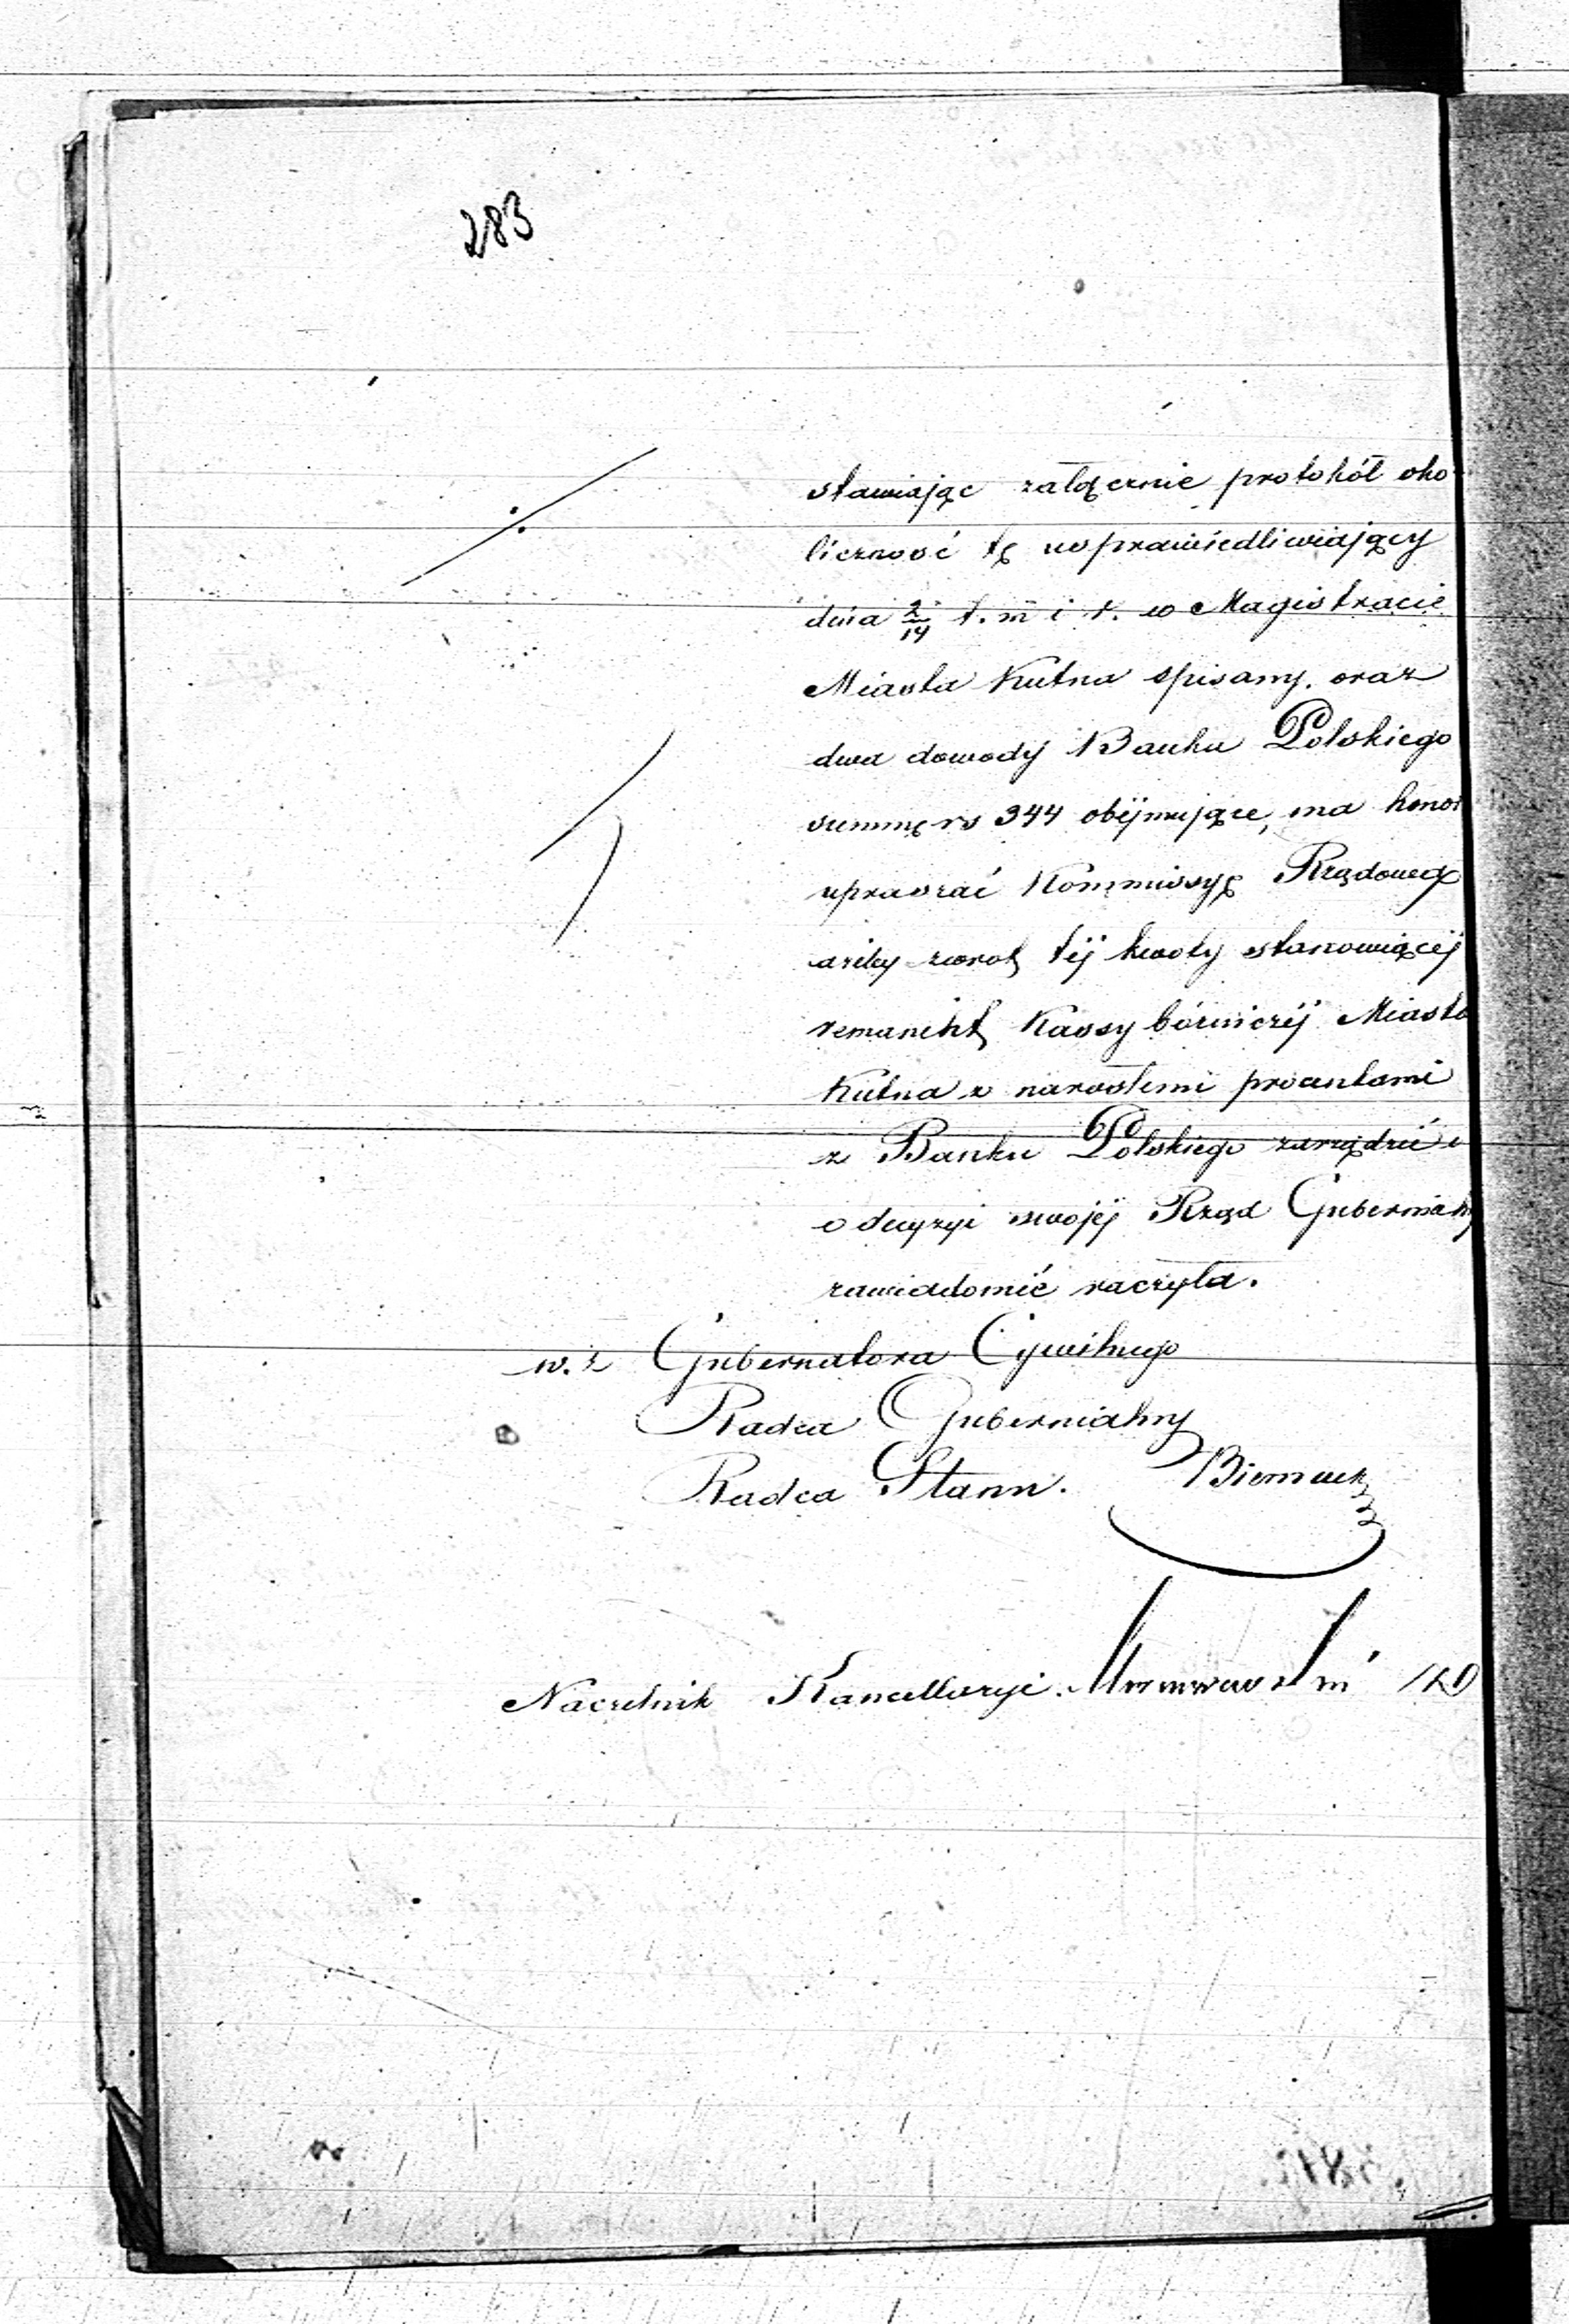 283
stawiając załącznie protokół oko
liczność tę usprawiedliwiający
dnia 2/14 t. m i r. w Magistracie
Miasta Kutna spisany. oraz
dwa dowody Banku Polskiego
summę rs 344 obejmujące, ma honor
upraszać Kommissyę Rządową
ażeby zwrot téj kwoty stanowiącéj
remanent Kassy bóżniczéj Miasta
Kutna z narosłemi procentami
z Banku Polskiego zarządzić i
o decyzyi swojéj Rząd Gubernialny
zawiadomić raczyła.
w. z Gubernatora Cywilnego
Radca Gubernialny
Radca Stanu.
Naczelnik Kancellaryi.